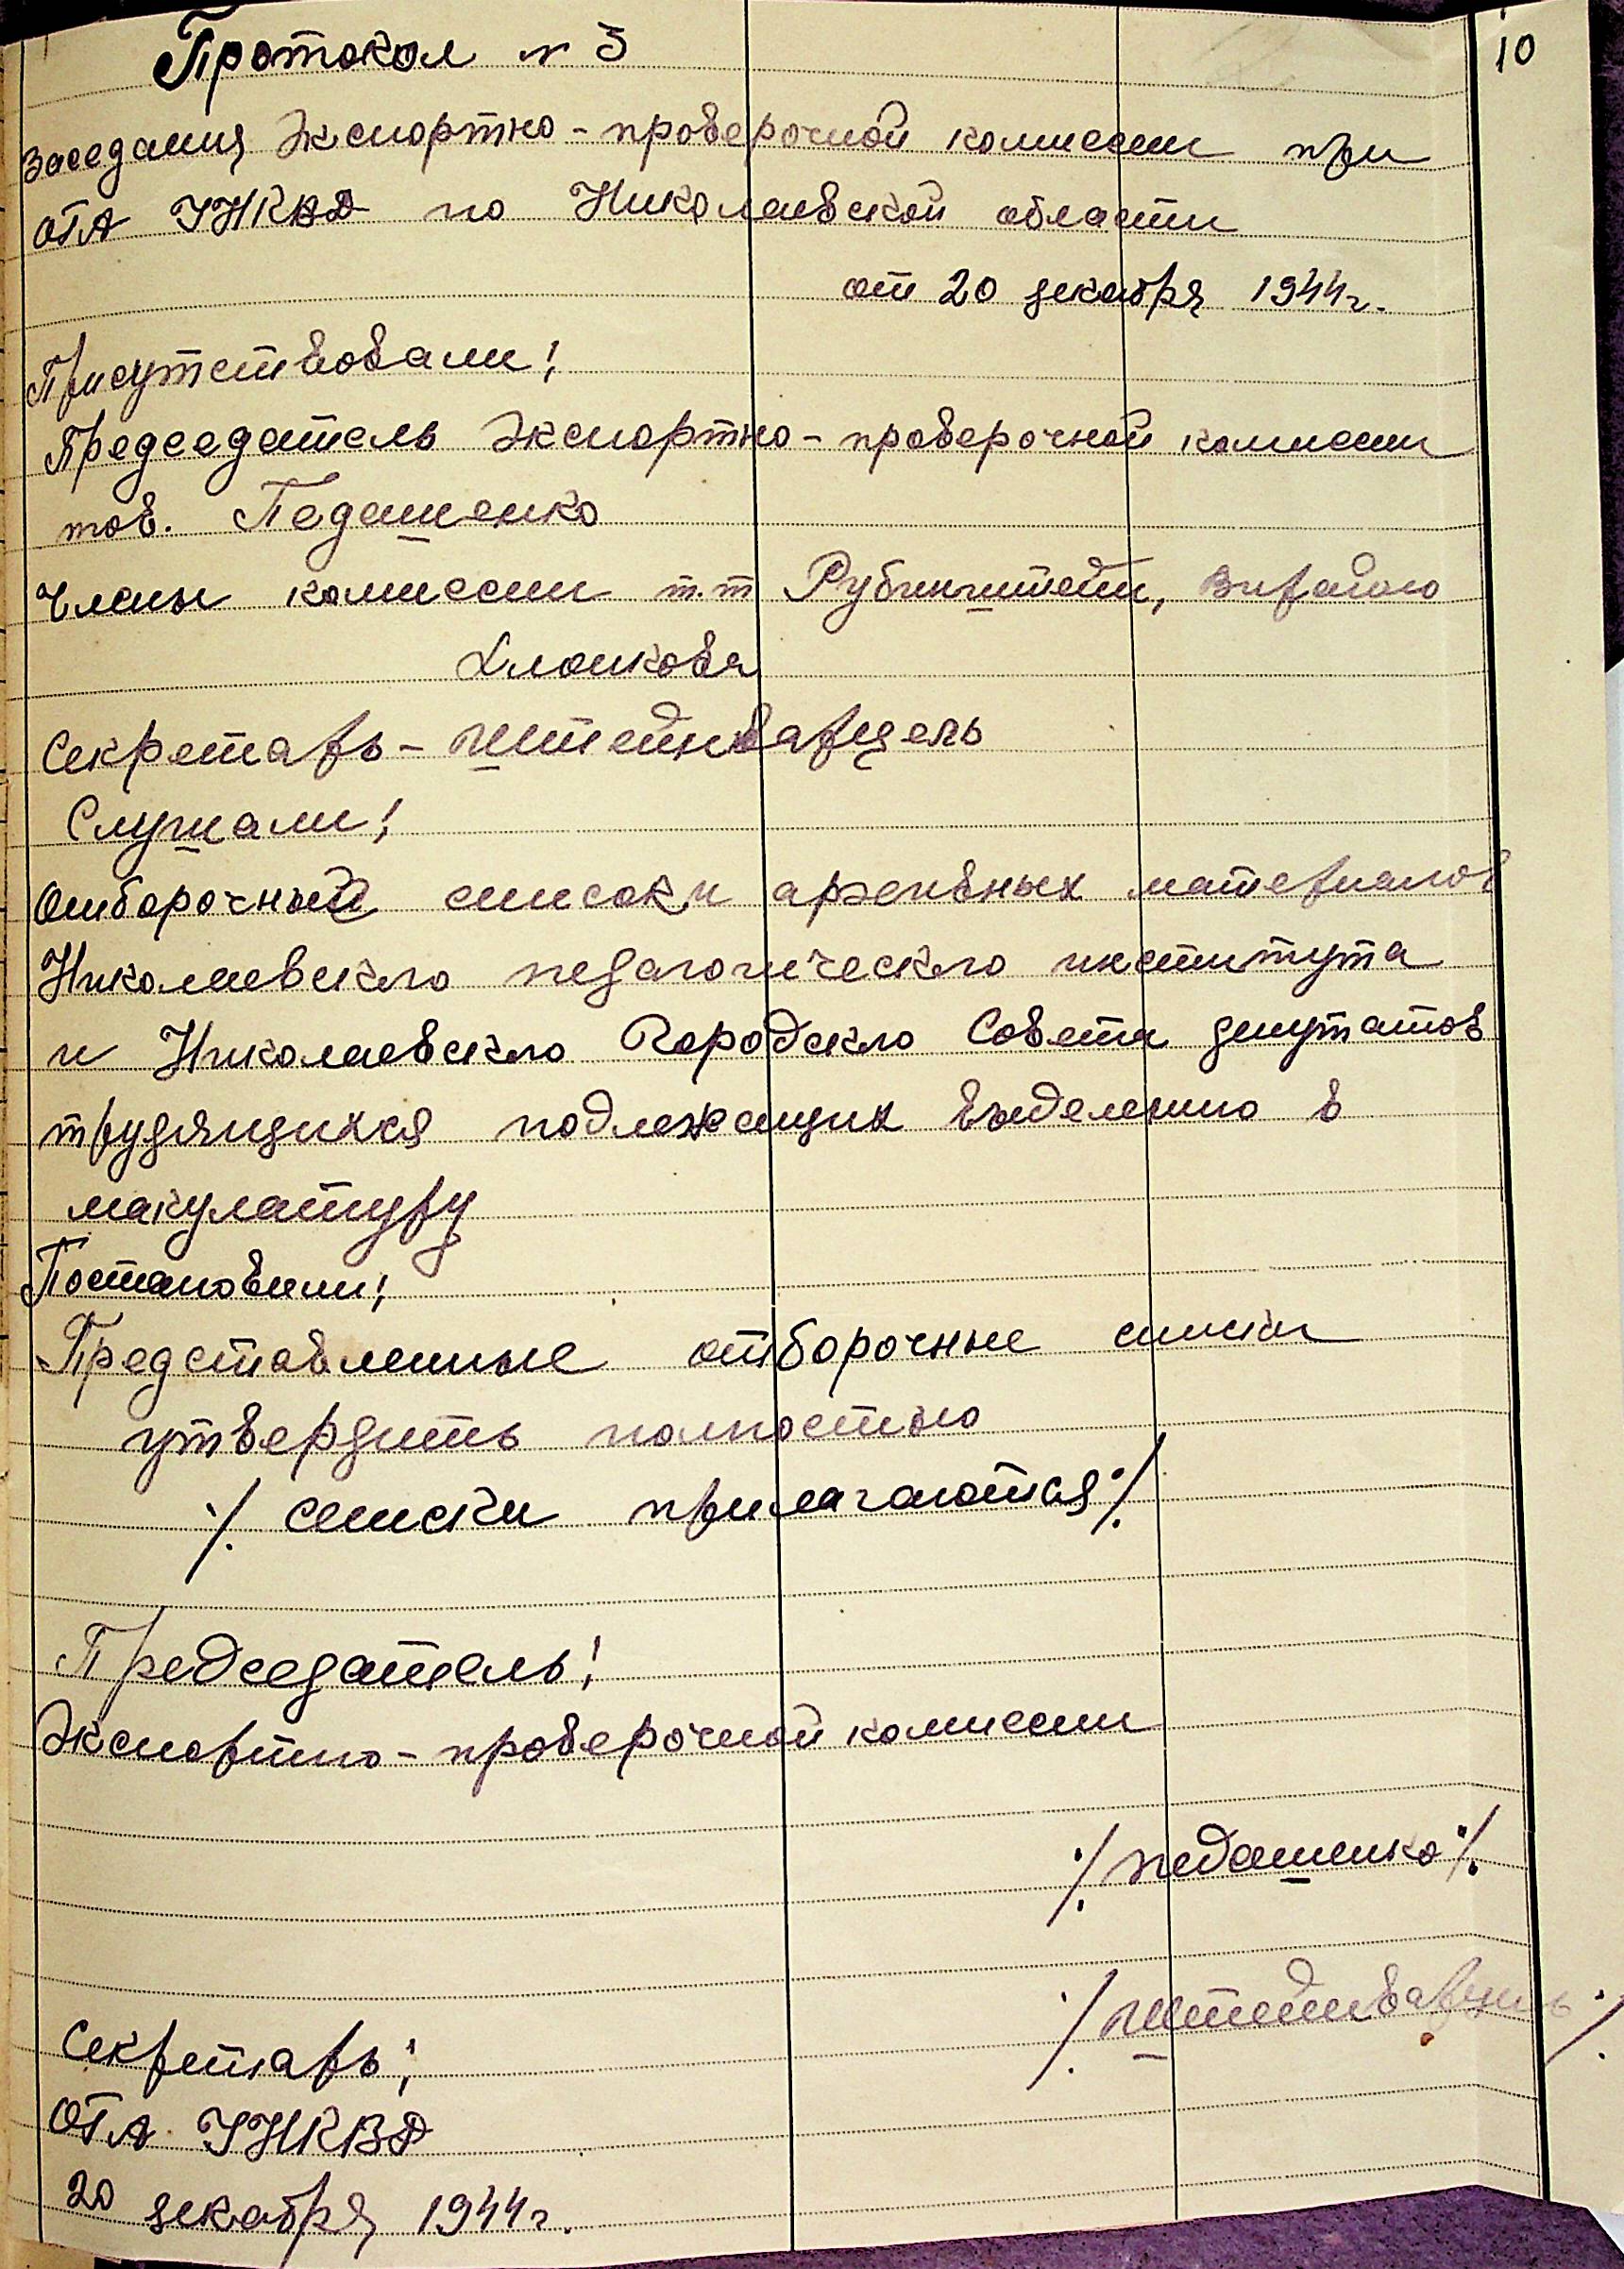 10
Протокол № 5
заседания Экспортно-проверочной комиссии при
ОГА УНКВД по Николаевской области
от 20 декабря 1944 г.
Присутствовали:
Председатель Экспортно-проверочной комиссии
тов. Педашенко
Члены комиссии т.т Рубинштейн,
Секретарь - Штейнварцель
Слушали:
Отборочный списоки архивных материалов
Николаевского педагогического института
и Николаевского Городского Совета депутатов
трудящихся подлежащих выделению в
макулатуру
Постановили:
Представленные отборочные списки
утвердить полностью
./. списки прилагаются ./.
Председатель:
Экспортно-проверочной комиссии
./. Педашенко ./.
./. Штейнварцель ./.
Секретарь:
ОГА УНКВД
20 декабря 1944 г.